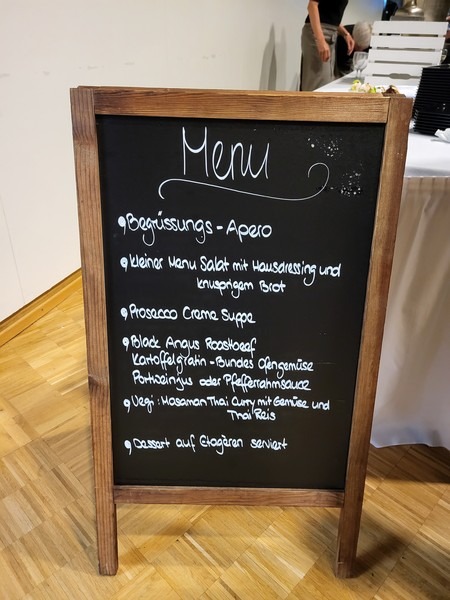 Menu
Begrüssungs - Apero
Kleiner Menu Salat mit Hausdressing und
knusprigem Brot
Prosecco Creme Suppe
Black Angus Roastbeef
Kartoffelgratin - Bundes Ofengemüse
Portweinjus oder Pfefferrahmsauce
Vegi : Masaman Thai Curry mit Gemüse und
Thai Reis
Dessert auf Etagèren serviert